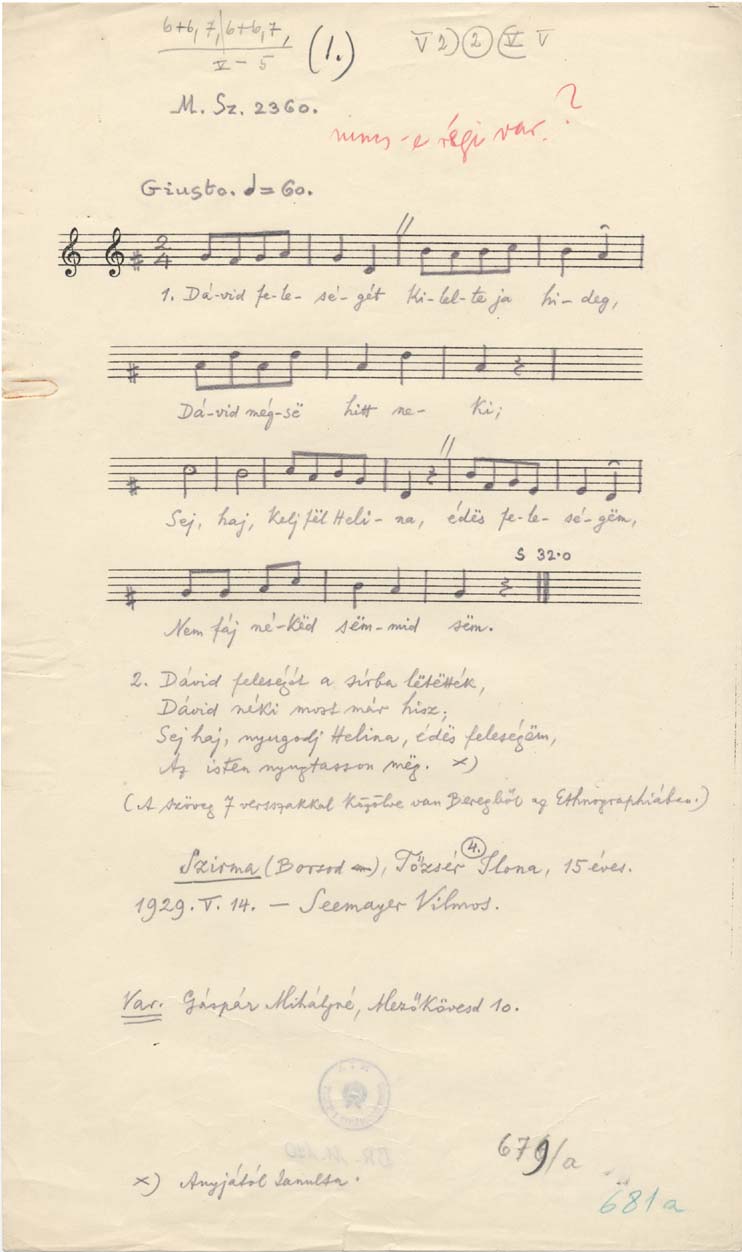 6+6, 7, 6+6, 7,
V – 5
(1.)
V 2) 2 V V
M. Sz. 2360.
nincs-e régi var.?
Giusto. ♩= 60.
2
4
1. Dá-vid fe-le- sé- gét Ki-lel-te ja hi- deg,
Dá-vid még-së hitt ne- Ki;
Sej, haj, Kelj fël Heli- na, édës fe-le- sé- gëm,
S 32.0
Nem fáj né-Këd sëm-mid sëm.
2. Dávid feleségét a sírba lëtëtték,
Dávid néki most már hisz;
Sej haj, nyugodj Helina, édës feleségëm,
Az isten nyugtasson mëg. x)
(A szöveg 7 versszakkal Közölve van Beregből az Ethnographiában.)
Szirma (Borsod), Tőzsér Ilona, 15 éves.
4.
1929. V. 14. — Seemayer Vilmos.
Var. Gáspár Mihályné, Mezőkövesd 10.
679/a
x) Anyjától tanulta.
681a